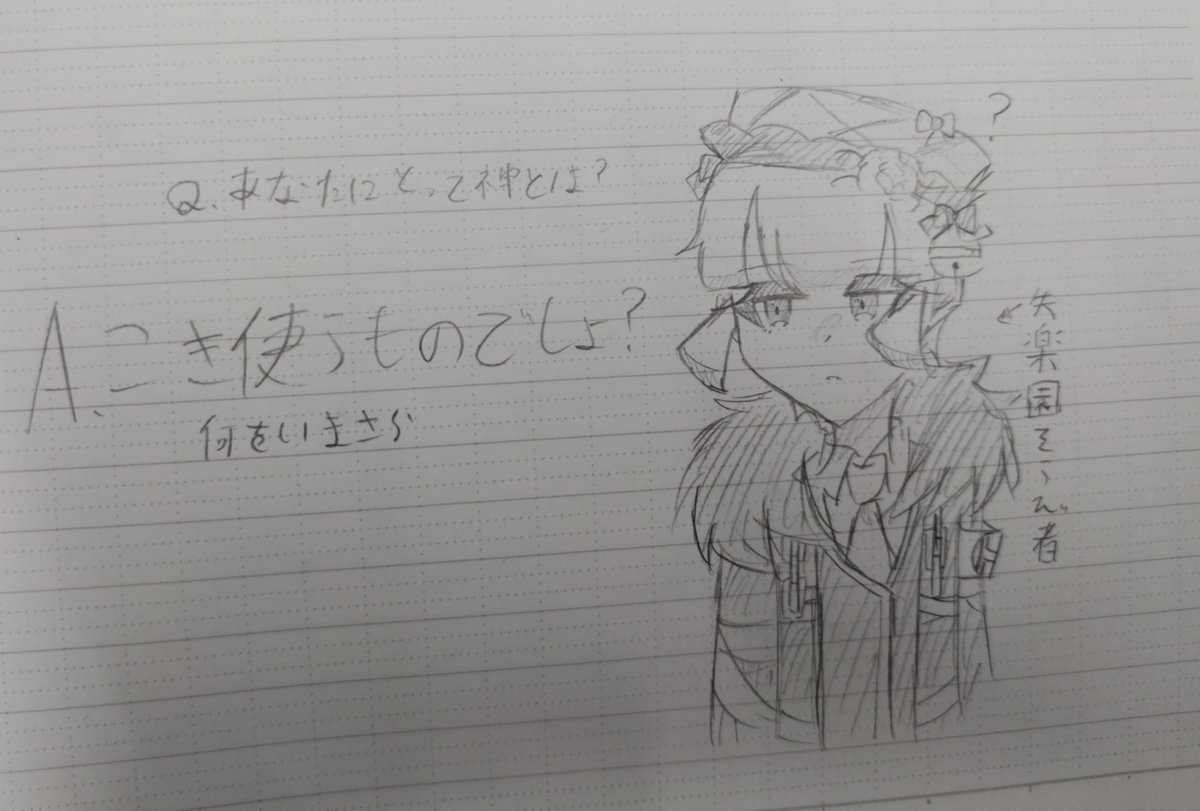 Q.あなたにとって神とは?
A.こき使うものでしょ?
何をいまさら
?
←失楽園
者